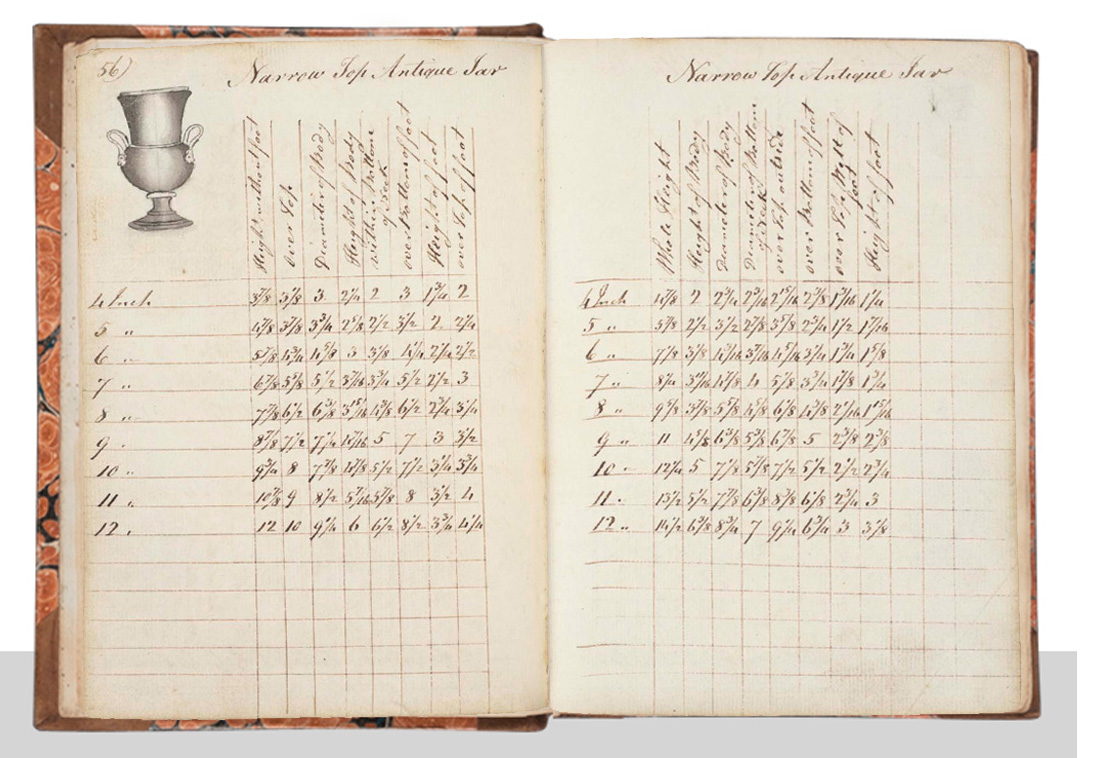 56)
Narrow Top Antique Jar
Height without foot
over Top
Diameter of Body
Height of Body
within Bottom of Neck
over Bottom of foot
Height of foot
over Top of foot
4 Inch 3 7/8 3 3 2 1/4 2 3 1 3/4 2
5 " 4 7/8 3 7/8 3 3/4 2 5/8 2 1/2 3 1/2 2 2 1/4
6 " 5 7/8 4 3/4 4 5/8 3 3 1/8 4 1/4 2 1/4 2 1/2
7 " 6 7/8 5 5/8 5 1/2 3 3/4 5 1/2 2 1/2 3
8 " 7 7/8 6 1/2 6 3/8 3 15/16 4 3/8 6 1/2 2 3/4 3 1/4
9 " 8 7/8 7 1/2 7 1/4 4 7/16 5 7 3 3 1/2
10 " 9 3/4 8 7 7/8 4 7/8 5 1/2 7 1/2 3 1/4 3 3/4
11 " 10 7/8 9 8 1/2 5 7/16 5 7/8 8 3 1/2 4
12 " 12 10 9 1/4 6 6 1/2 8 1/2 3 3/4 4 1/4
Narrow Top Antique Jar
Whole Height
Height of Body
Diameter of Body
Diameter of Bottom of Neck
over Top outside
over Bottom of foot
over Top of foot
Height of foot
4 Inch 4 7/8 2 2 3/4 2 3/16 2 15/16 2 3/8 1 3/16 1 1/4
5 " 5 7/8 2 1/2 3 1/2 2 7/8 3 5/8 2 3/4 1 1/2 1 7/16
6 " 7 1/8 3 1/8 4 3/16 3 7/16 4 5/16 3 1/4 1 3/4 1 5/8
7 " 8 1/4 3 4 7/8 4 5 1/8 3 3/4 1 7/8 1 3/4
8 " 9 5/8 3 7/8 5 5/8 4 5/8 6 1/8 4 3/8 2 1/16 1 15/16
9 " 11 4 5/8 6 3/8 5 3/8 6 7/8 5 2 3/8 2 3/8
10 " 12 1/4 5 7 1/8 5 7/8 7 1/2 5 1/2 2 1/2 2 3/4
11 " 13 1/2 5 1/2 7 7/8 6 3/8 8 3/8 6 1/8 2 3/4 3
12 " 14 1/2 6 3/8 8 3/4 7 9 1/4 6 3/4 3 3 1/8